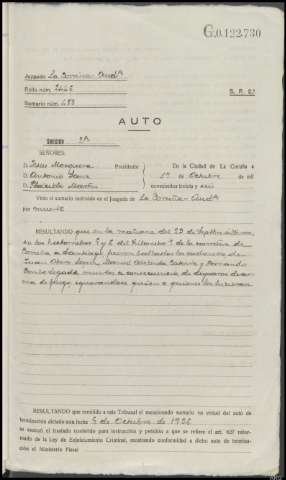 G.0.122.730
Juzgado La Coruña-Aud.ª
Rollo núm. 2446
S. R. 92
Sumario núm. 488
AUTO
Sección 2ª
SEÑORES:
D. Presidente
D. Antonio
D. Martín
En la Ciudad de La Coruña a
de Octubre de mil
novecientos treinta y seis
Visto el sumario instruido en el Juzgado de La Coruña-Aud.ª
por muerte
RESULTANDO que en la mañana del 29 de Septiembre
en los hectómetros 1 y 2 del Kilómetro 9 de la carretera de
Coruña a Santiago fueron hallados los cadáveres de
Juan Manuel y Bernardo
muertos a consecuencia de disparos de ar-
ma de fuego ignorándose quien o quienes los hicieran
RESULTANDO que remitido a este Tribunal el mencionado sumario en virtud del auto de
terminación dictado con fecha 5 de Octubre de 1936
se evacuó el traslado conferido para instrucción y petición a que se refiere el art. 627 refor-
mado de la Ley de Enjuiciamiento Criminal, mostrando conformidad a dicho auto de termina-
ción el Ministerio Fiscal